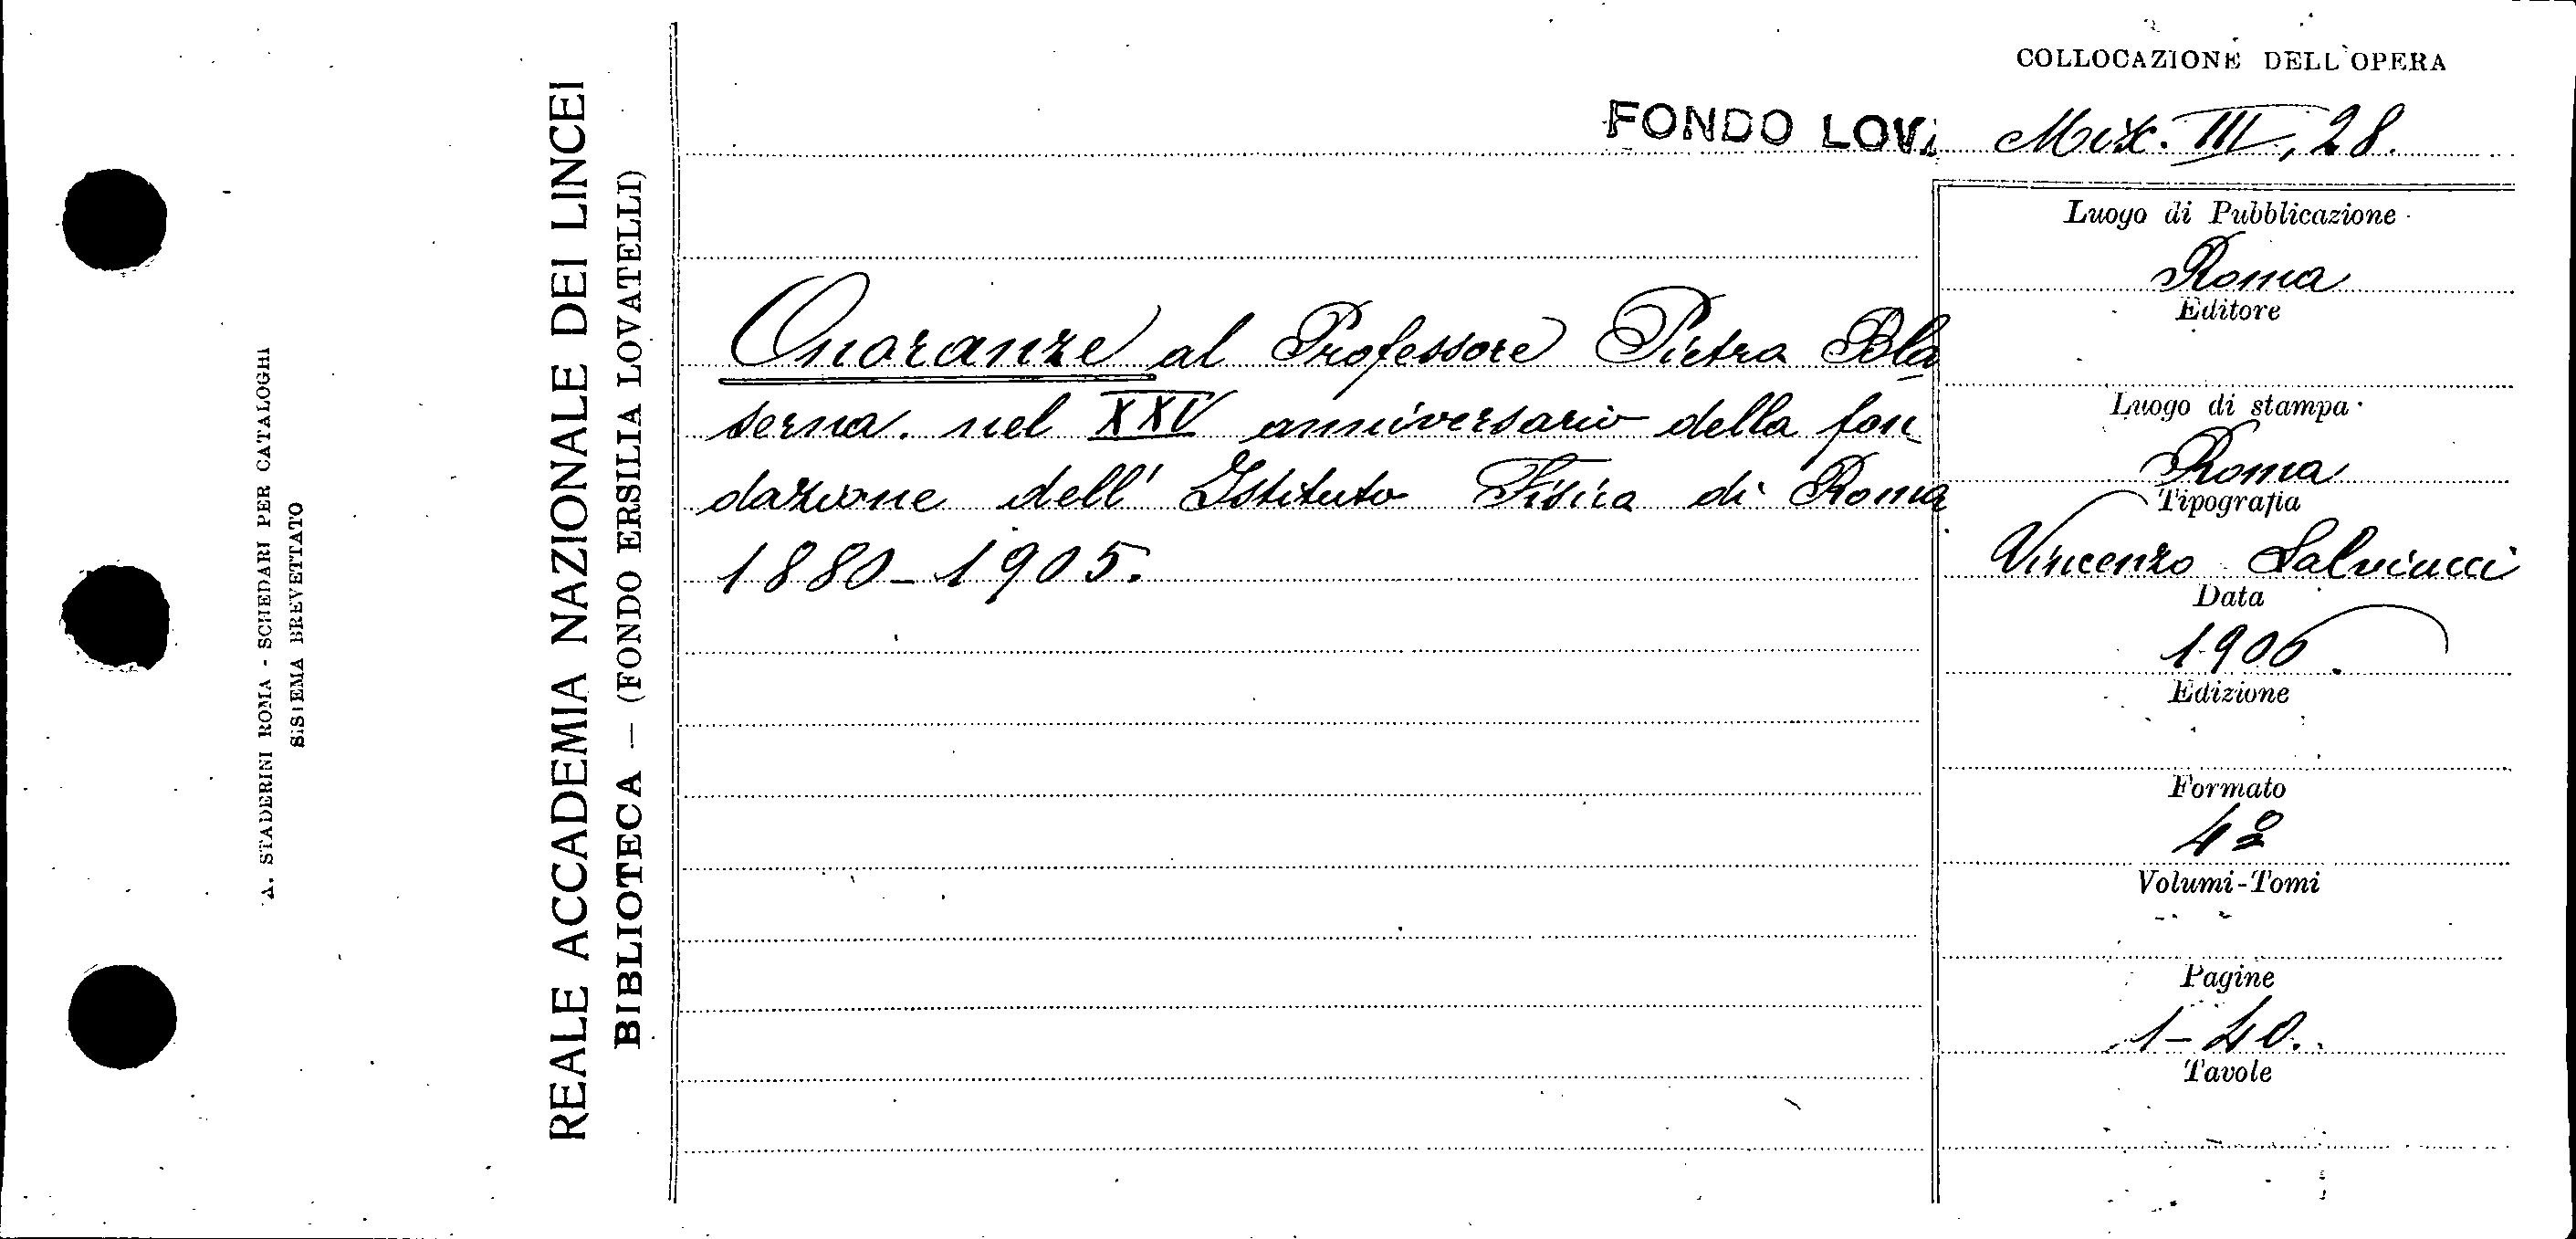 COLLOCAZIONE DELL'OPERA
FONDO LOV. Mix. III, 28.
REALE ACCADEMIA NAZIONALE DEI LINCEI
BIBLIOTECA — (FONDO ERSILIA LOVATELLI)
A. STADERINI ROMA - SCHEDARI PER CATALOGHI
SISTEMA BREVETTATO
Onoranze al Professore Pietro Bla
serna nel XXV anniversario della fon
dazione dell' Istituto Fisico di Roma
1880-1905.
Luogo di Pubblicazione
Roma
Editore
Luogo di stampa
Roma
Tipografia
Vincenzo Salviucci
Data
1906.
Edizione
Formato
4º
Volumi-Tomi
Pagine
1-40.
Tavole